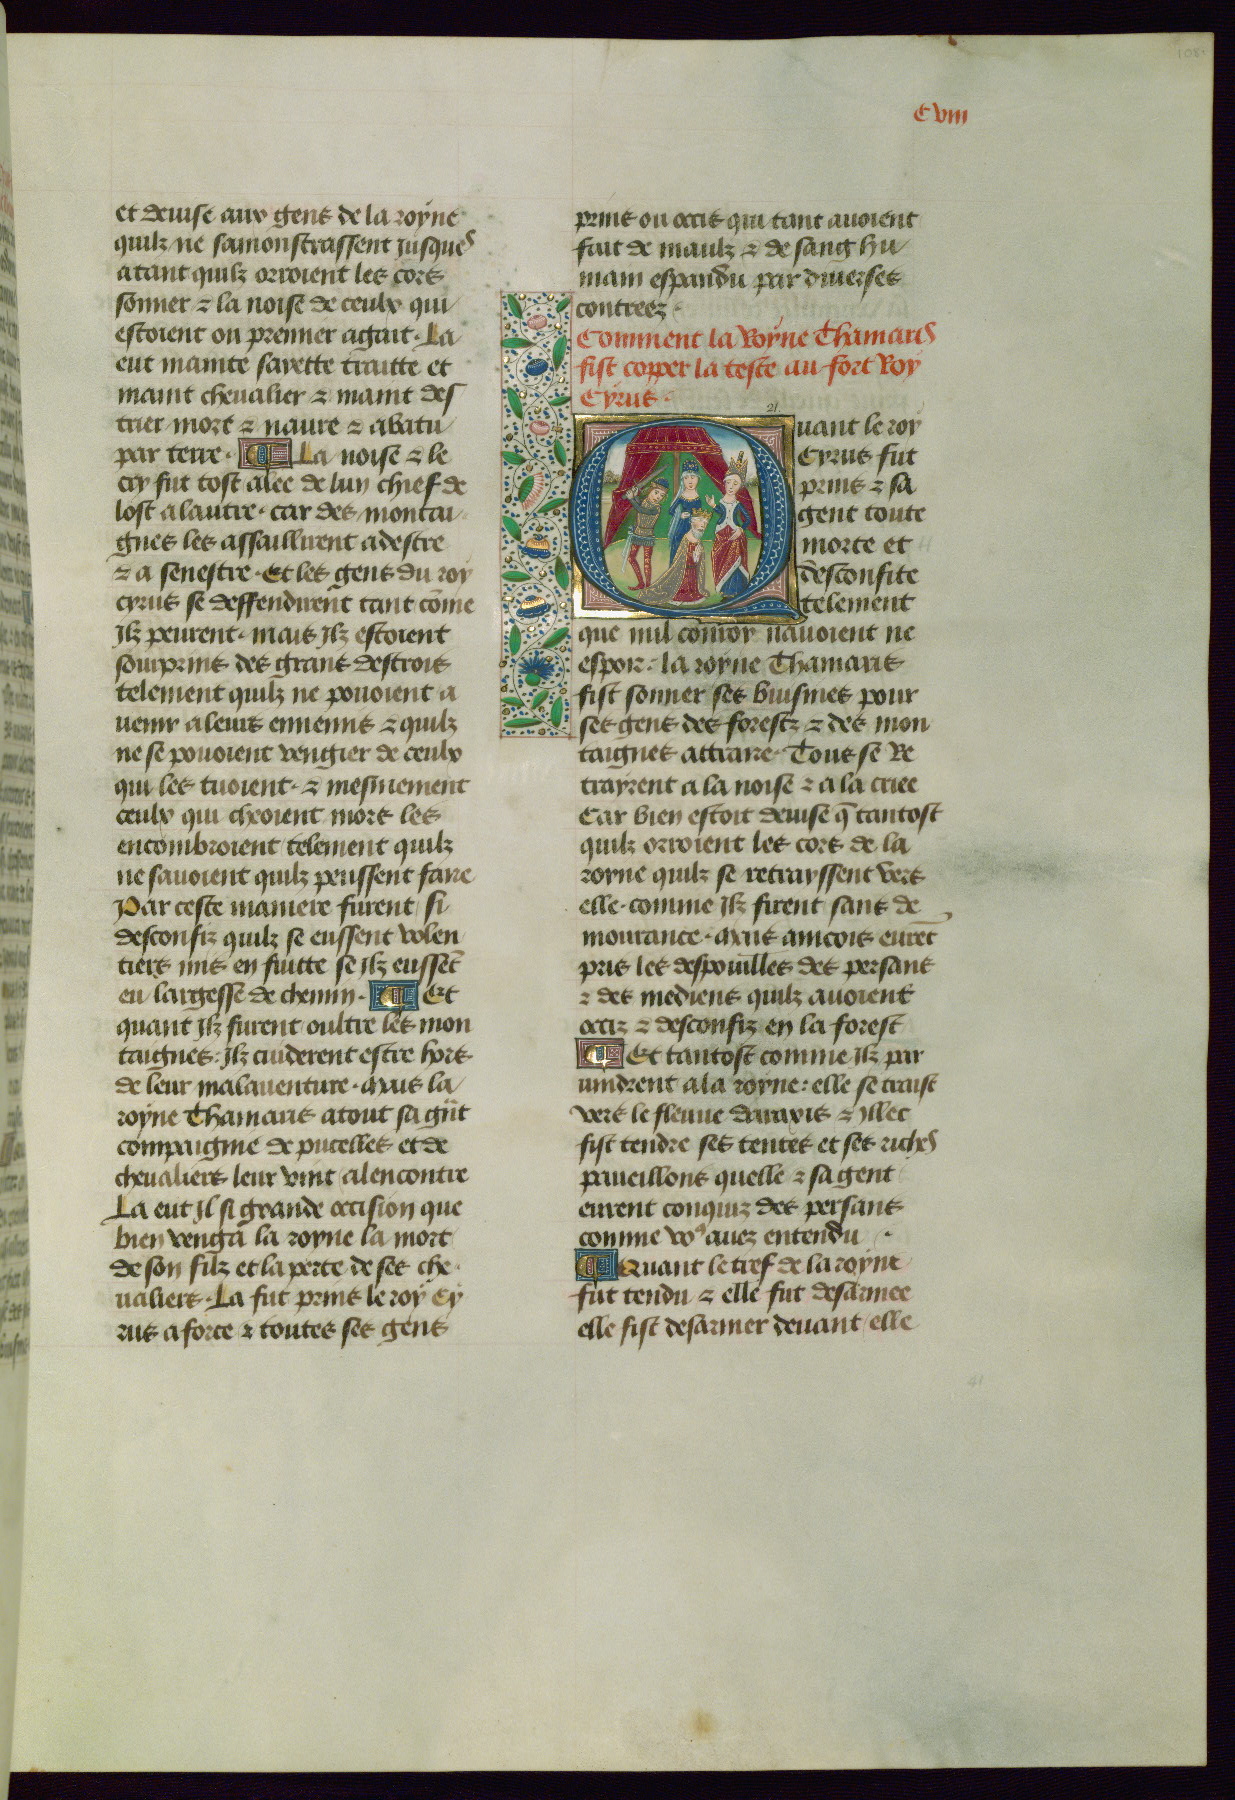 108
Cviii
et deuise aux gens de la royne
quilz ne samonstrassent jusques
atant quilz orroient les cors
sonner ⁊ la noise de ceulx qui
estoient ou premier agait. La
eut mainte sayette traitte et
maint cheualier ⁊ maint des
trier mort ⁊ naure ⁊ abatu
par terre. La noise ⁊ le
cry fut tost alee de lun chief de
lost alautre. car des montai
gnes les assaillirent adestre
⁊ a senestre. Et les gens du roy
cyrus se deffendirent tant cōme
Ilz peurent. mais Ilz estoient
souprins des grans destrois
telement quilz ne pouoient a
uenir a leurs ennemis ⁊ quilz
ne se pouoient vengier de ceulx
qui les tuoient. ⁊ mesmement
ceulx qui cheoient mors les
encombroient telement quilz
ne sauoient quilz peussent faire
Par ceste maniere furent si
desconfiz quilz se eussent volen
tiers mis en fuitte se Ilz eussēt
eu largesse de chemin. Et
quant Ilz furent oultre les mon
taignes: Ilz cuiderent estre hors
de leur malauenture. Mais la
royne Thamaris atout sa grāt
compaignie de pucelles et de
cheualiers leur vint alencontre
La eut Il si grande occision que
bien venga la royne la mort
de son filz et la perte de ses che
ualiers. La fut prins le roy Cy
rus a force ⁊ toutes ses gens
prins ou occis qui tant auoient
fait de maulz ⁊ de sang hu
main espandu par diuerses
contreez.
Comment la Royne Thamaris
fist copper la teste au fort Roy
Cyrus.
21.
Quant le roy
Cyrus fut
prins ⁊ sa
gent toute
morte et
desconfite
telement
que nul conroy nauoient ne
espoir: la royne Thamaris
fist sonner ses buisines pour
ses gens des forestz ⁊ des mon
taignes attraire. Tous se Re
trayrent a la noise ⁊ a la criee
Car bien estoit deuise q̄ tantost
quilz orroient les cors de la
royne quilz se retrayssent vers
elle. comme Ilz firent sans de
mourance. Mais aincois eurēt
pris les despouilles des persans
⁊ des mediens quilz auoient
occiz ⁊ desconfiz en la forest
Et tantost comme Ilz par
uindrent a la royne: elle se traist
vers le fleuue daraxis ⁊ yllec
fist tendre ses tentes et ses riches
paueillons quelle ⁊ sa gent
eurent conquiz des persans
comme voꝰ auez entendu.
Quant le tref de la royne
fut tendu ⁊ elle fut desarmee
elle fist desarmer deuant elle
41